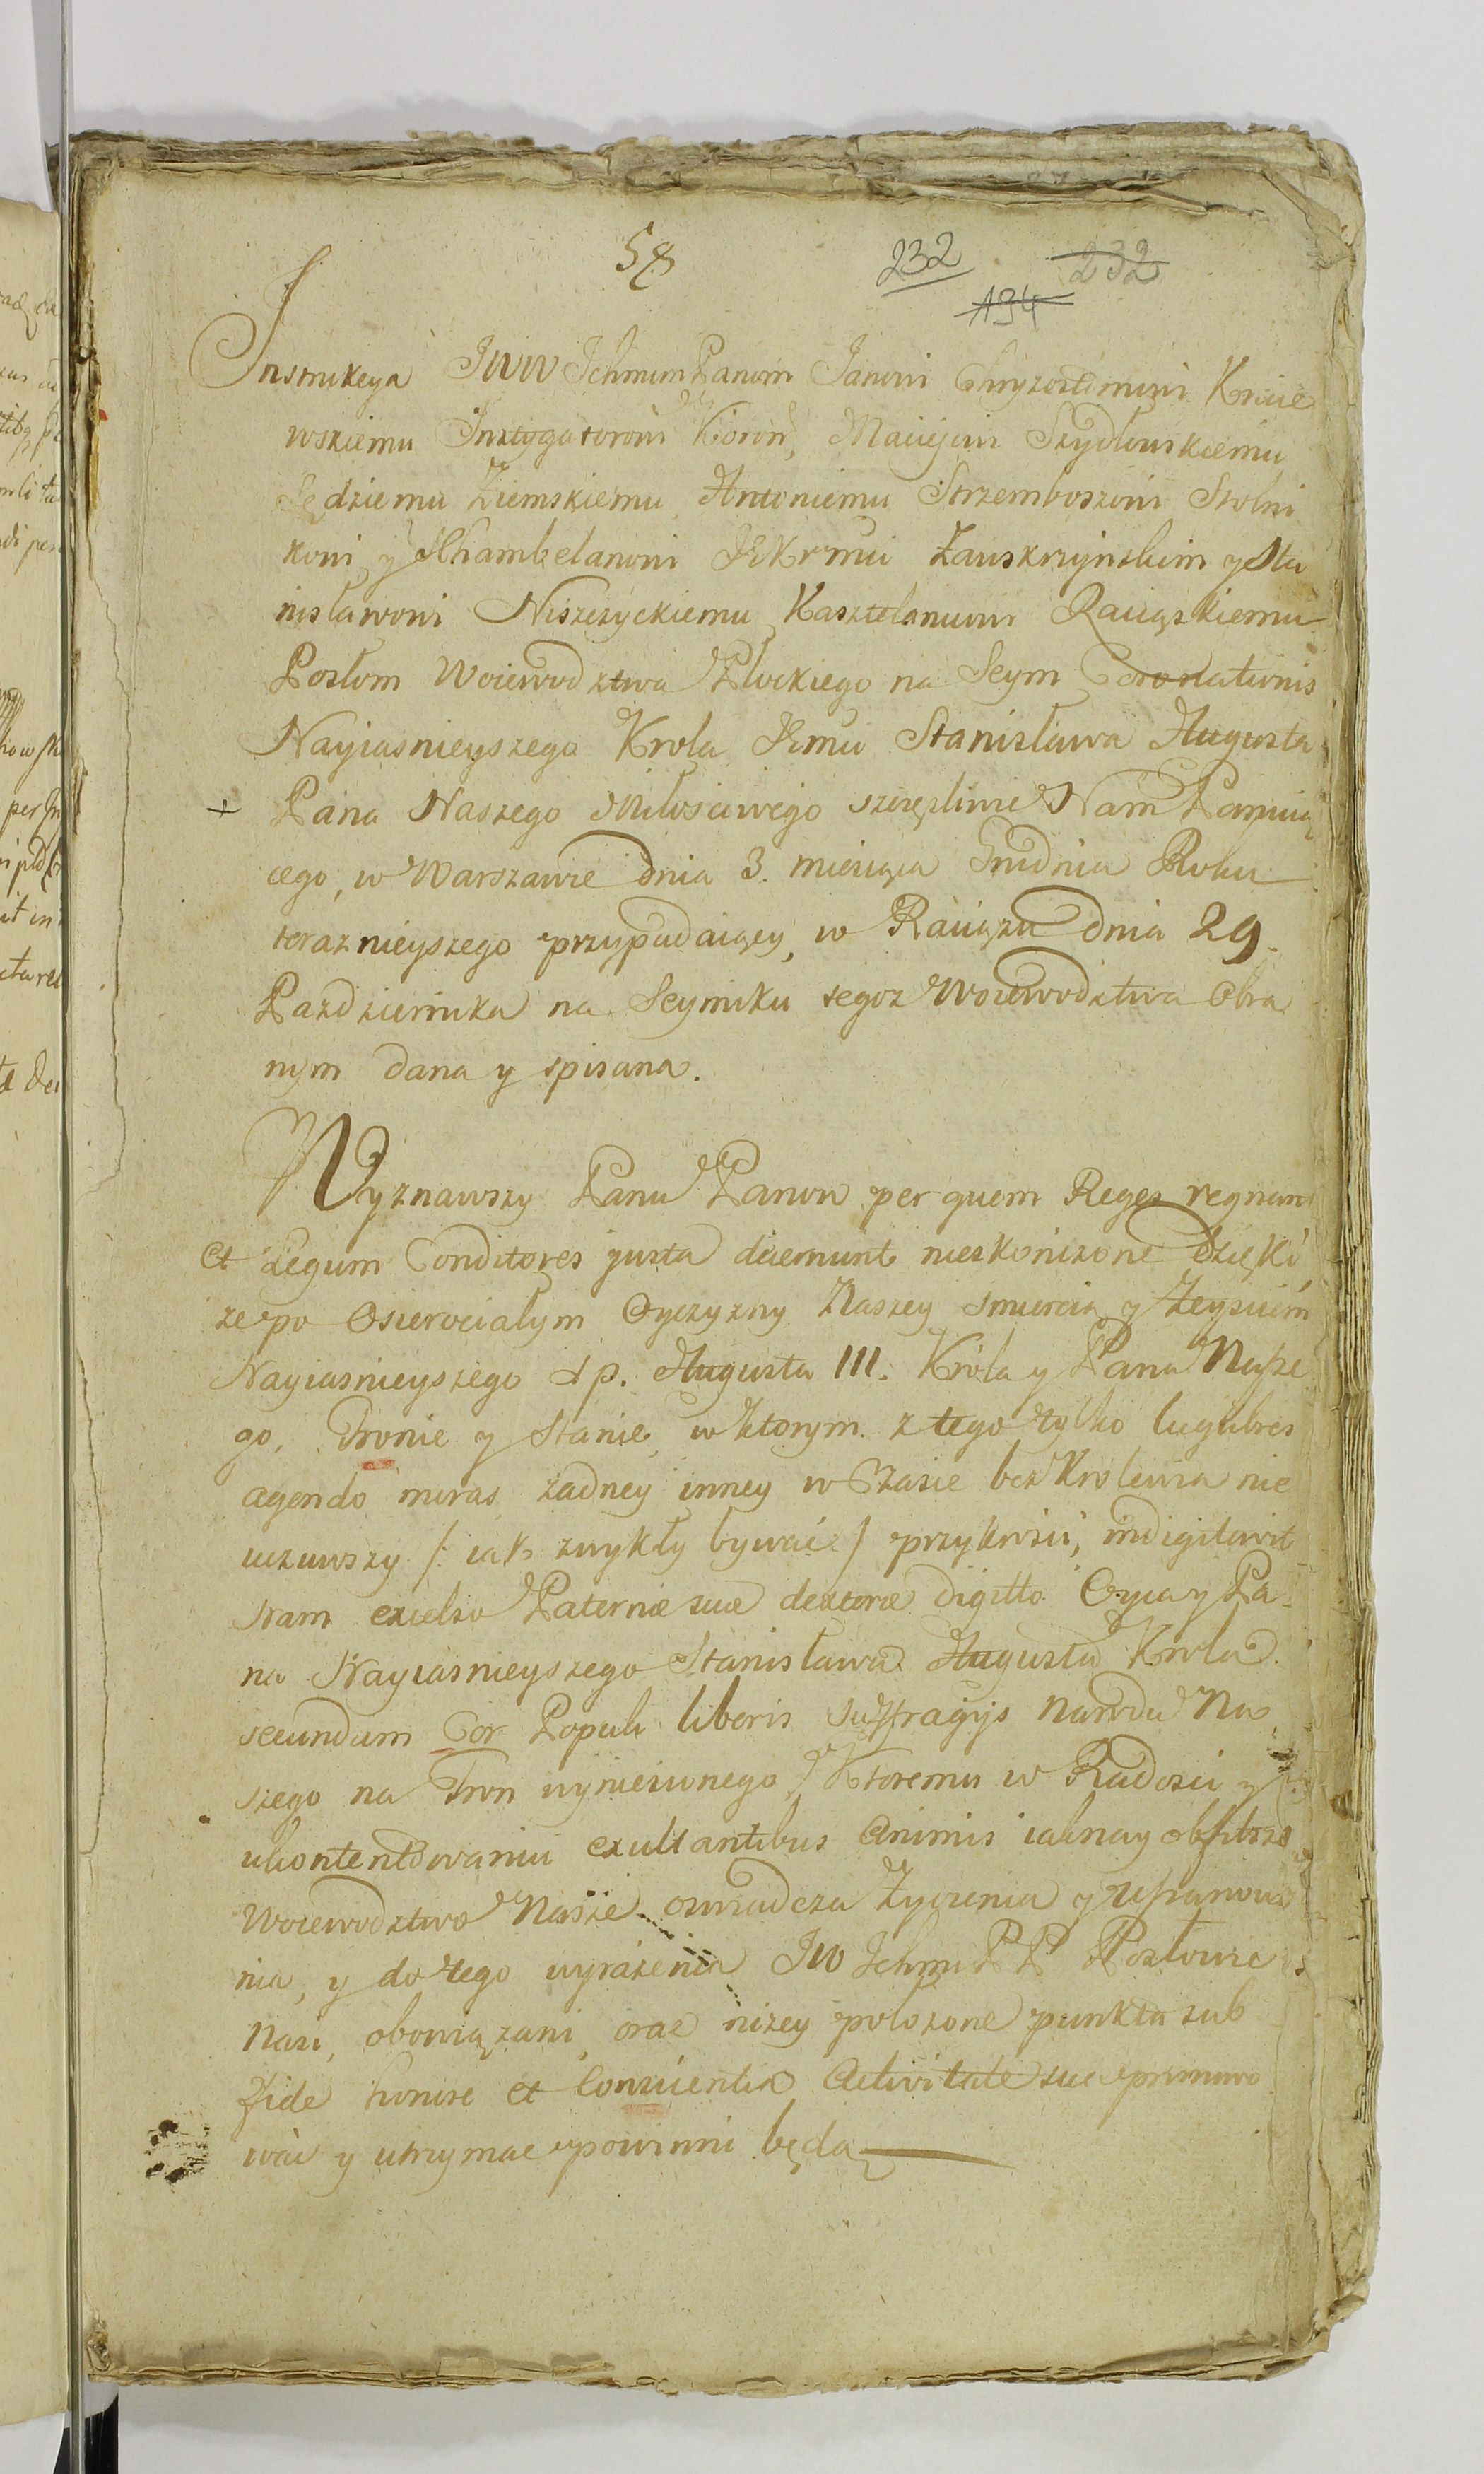 58
232
232
194
Instrukcya JWW Ichmm Panom Janowi Chryzostomowi Kraie
wskiemu Instygatorowi Koron, Maciejowi Szydłowskiemu
Sędziemu Ziemskiemu, Antoniemu Strzemboszowi Stolni
kowi y Szambelanowi JKrmci Zawskrzynskim y Sta
nisławowi Niszczyckiemu Kasztelanowi Raciązkiemu
Posłom Woiewodztwa Płockiego na Seym Coronationis
Nayiasnieyszego Krola Jmci Stanisława Augusta
Pana Naszego Miłosciwego szczęsliwie Nam Panuią
cego, w Warszawie dnia 3. miesiąca Grudnia Roku
teraznieyszego przypadaiący, w Raciązu dnia 29
Pazdziernika na Seymiku tegoz Woiewodztwa Obra
nym dana y spisana.
Wyznawszy Panu Panow per quem Reges regnant
et Legum Conditores justa decernunt nieskonczone Dzięki,
ze po Osierociałym Oyczyzny Naszey smiercią y Zeysciem
Nayiasnieyszego S p. Augusta III. Króla y Pana Nasze
go, Tronie y Stanie, w ktorym z tego tylko lugubres
agendo moras, zadney inney w Czasie bez Krolewia nie
uczuwszy /: iak zwykły bywać :/ przykrosci, indigitowit
Nam excelso Paternæ suæ dexteræ digitto Oyca y Pa
na Nayiasnieyszego Stanisława Augusta Krola
secundum Cor Populi liberis suffragijs Narodu Na
szego na Tron wyniesionego, Ktoremu w Radosci y
ukontentowaniu exultantibus Animis iaknay obfitsze
Woiewodztwo Nasze oswiadcza Zyczenia y Uszanowa
nia, y do tego wyrażenia JW Ichmc PP Posłowie
Nasi, obowiązani, oraz niżey położone punkta sub
fide honore et Consientia Activitate sua promowo
wać y utrzymac powinni będą